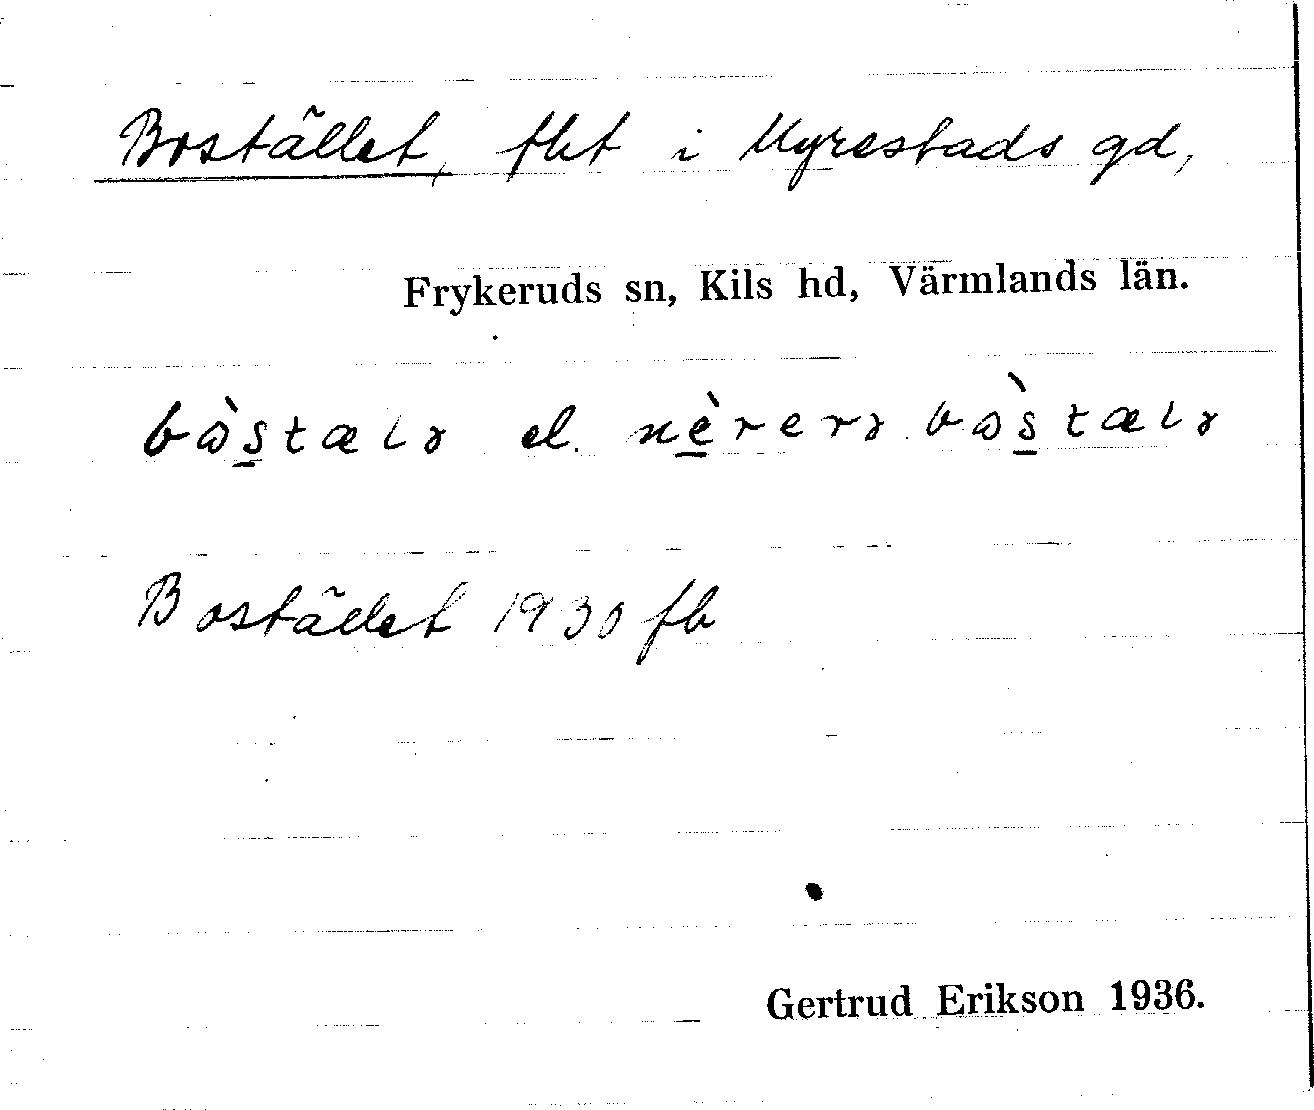 Bostället, tht i Myrestads gd,
Frykeruds sn, Kils hd, Värmlands län.
el.
Bostället 1930 fb
Gertrud Erikson 1936.